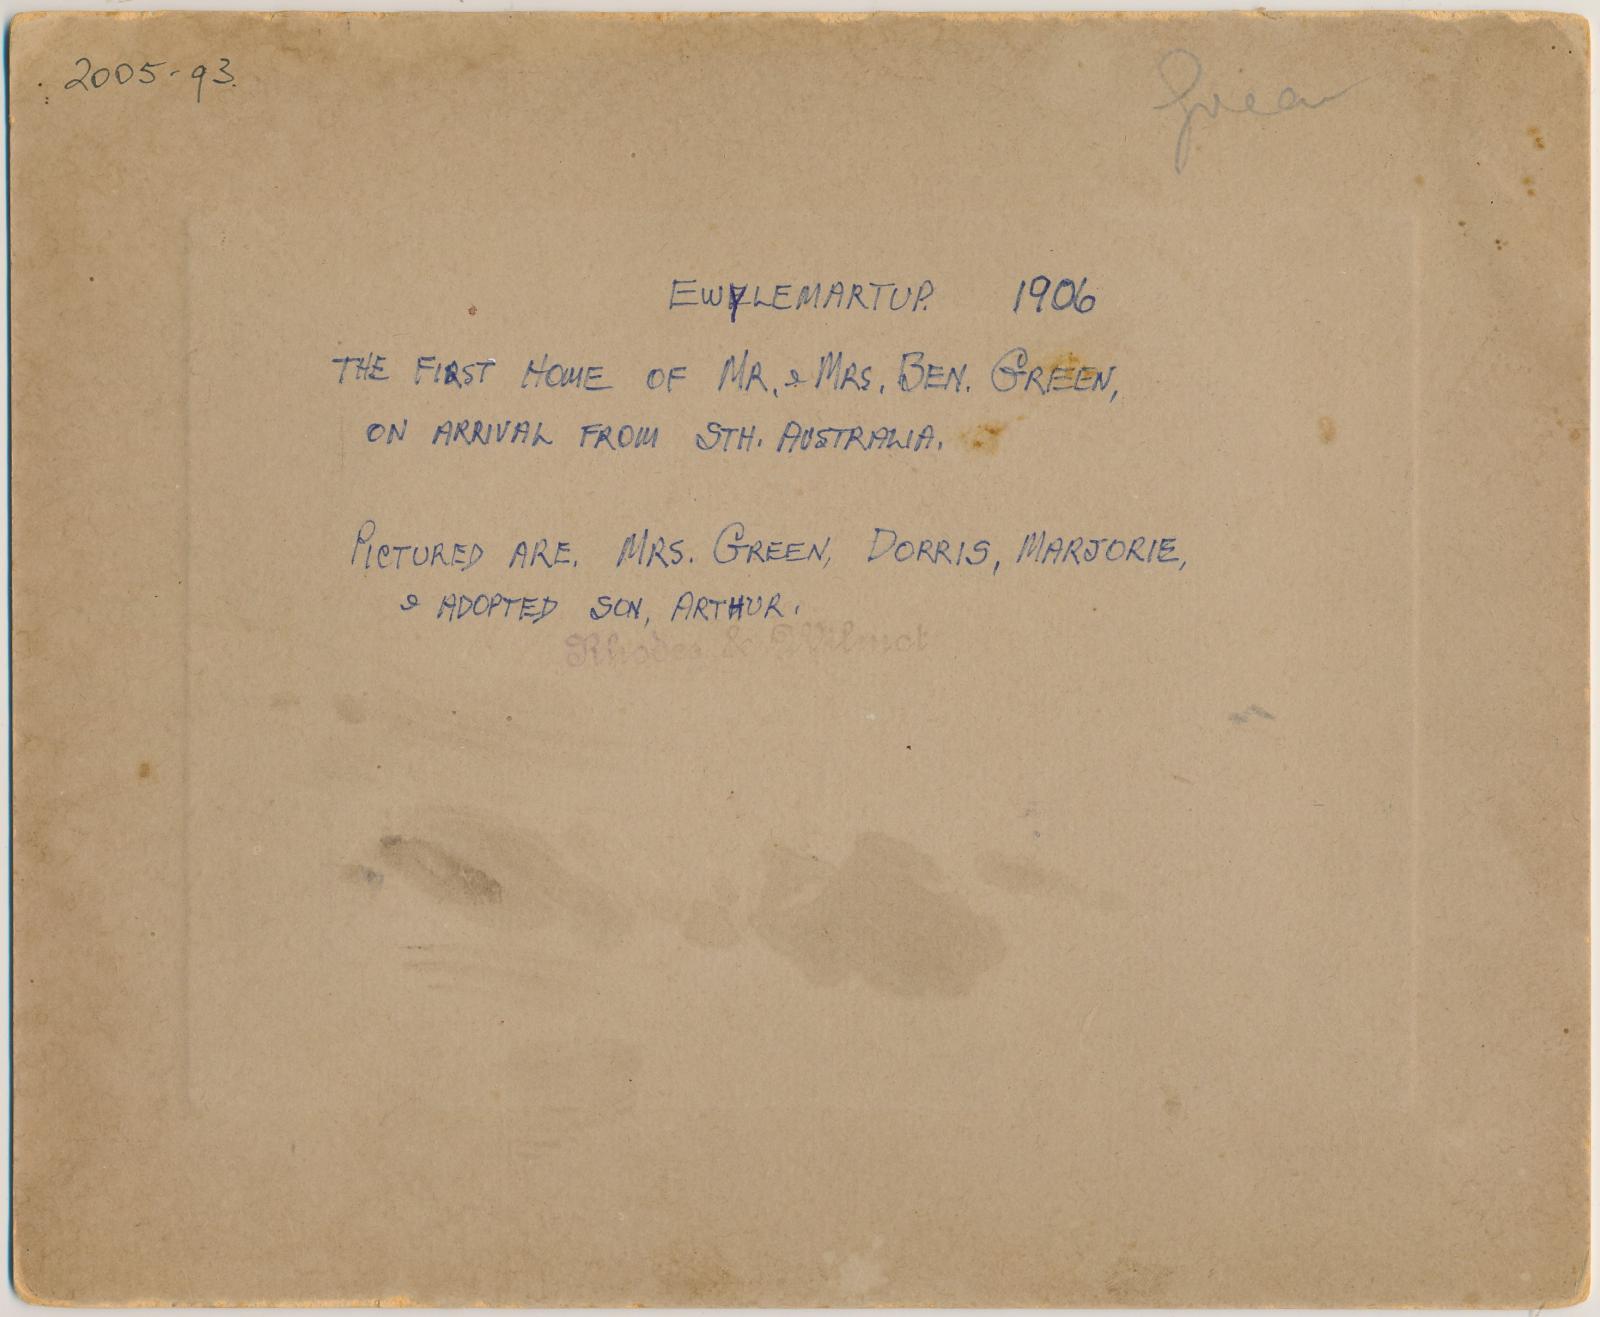 2005-93.
Green
EWYLEMARTUP. 1906
THE FIRST HOME OF MR. & MRS. BEN. GREEN,
ON ARRIVAL FROM STH. AUSTRALIA.
PICTURED ARE. MRS. GREEN, DORRIS, MARJORIE,
& ADOPTED SON, ARTHUR.
Rhodes & Wilmot